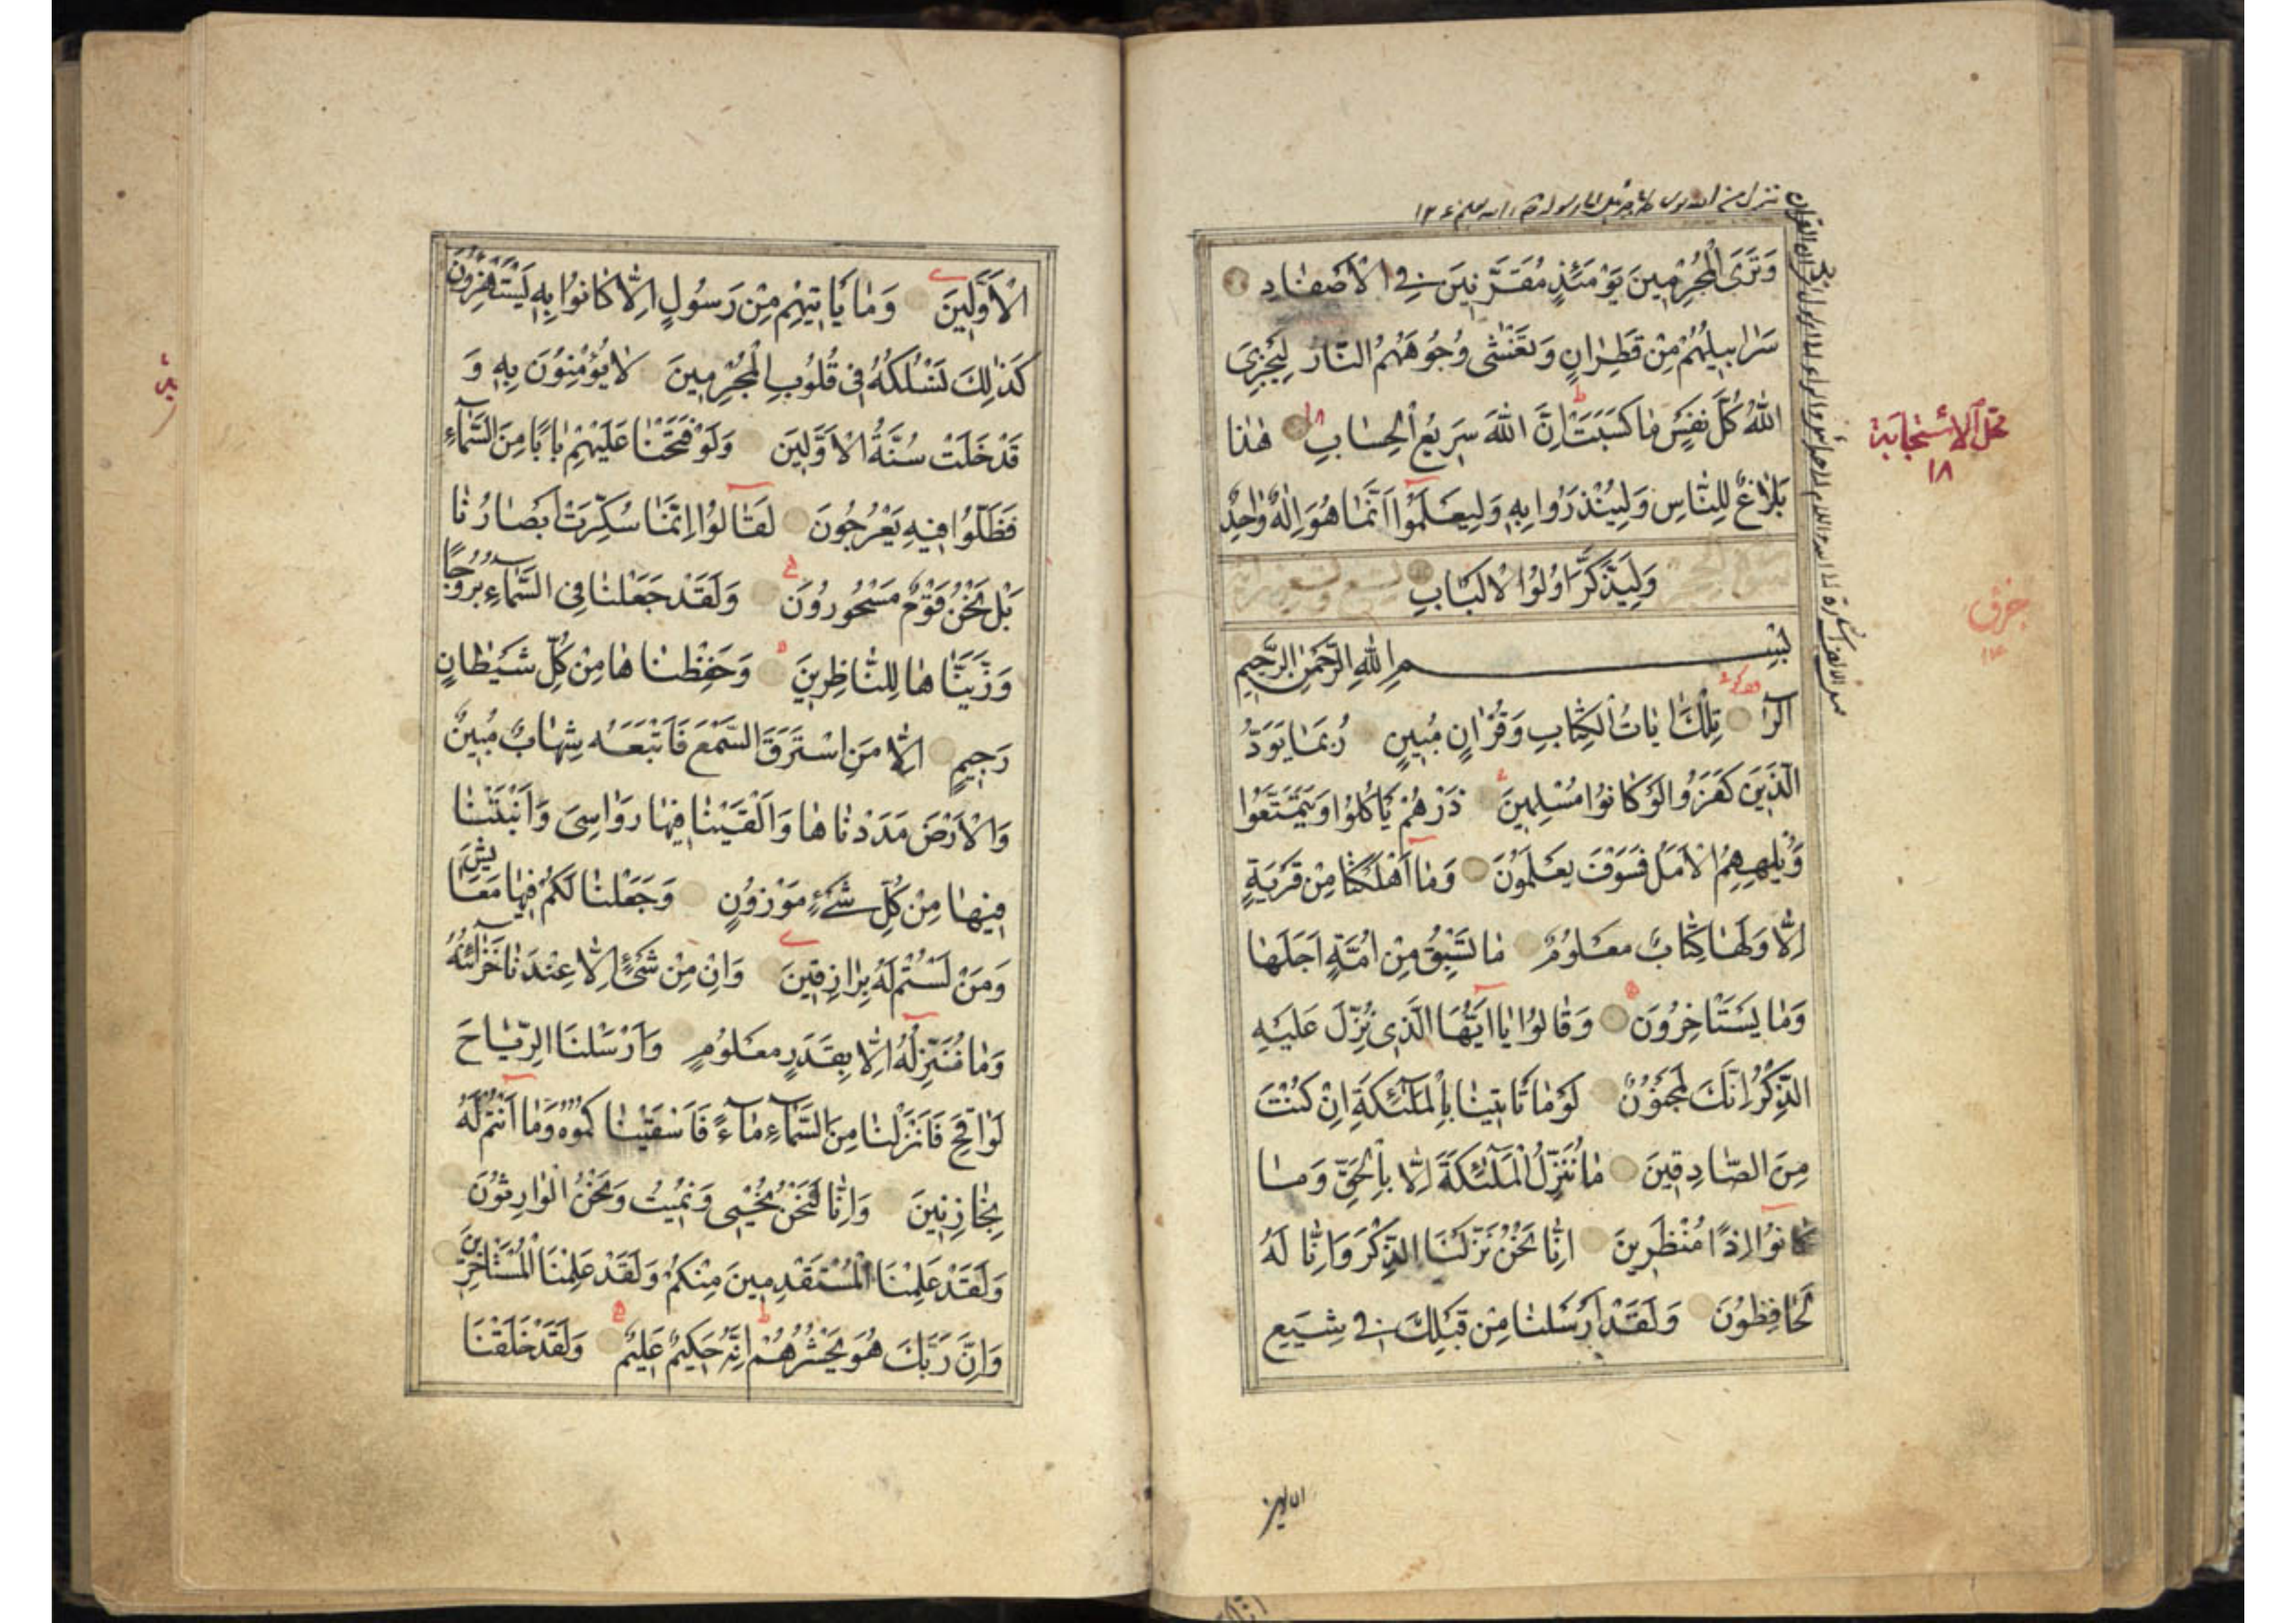 وَتَرَى الْمُجْرِمِينَ يَوْمَئِذٍ مُقَرَّنِينَ فِي الْاَصْفَادِ
سَرَابِيلُهُمْ مِنْ قَطِرَانٍ وَتَغْشٰى وُجُوهَهُمُ النَّارُ لِيَجْزِىَ
اللّٰهُ كُلَّ نَفْسٍ مَا كَسَبَتْ اِنَّ اللّٰهَ سَرِيعُ الْحِسَابِ هٰذَا
بَلَاغٌ لِلنَّاسِ وَلِيُنْذَرُوا بِهٖ وَلِيَعْلَمُوا اَنَّمَا هُوَ اِلٰهٌ وَاحِدٌ
وَلِيَذَّكَّرَ اُولُوا الْاَلْبَابِ
بِسْمِ اللّٰهِ الرَّحْمٰنِ الرَّحِيمِ
الٓرٰ تِلْكَ اٰيَاتُ الْكِتَابِ وَقُرْاٰنٍ مُبِينٍ رُبَمَا يَوَدُّ
الَّذِينَ كَفَرُوا لَوْ كَانُوا مُسْلِمِينَ ذَرْهُمْ يَاْكُلُوا وَيَتَمَتَّعُوا
وَيُلْهِهِمُ الْاَمَلُ فَسَوْفَ يَعْلَمُونَ وَمَا اَهْلَكْنَا مِنْ قَرْيَةٍ
اِلَّا وَلَهَا كِتَابٌ مَعْلُومٌ مَا تَسْبِقُ مِنْ اُمَّةٍ اَجَلَهَا
وَمَا يَسْتَاْخِرُونَ وَقَالُوا يَا اَيُّهَا الَّذِى نُزِّلَ عَلَيْهِ
الذِّكْرُ اِنَّكَ لَمَجْنُونٌ لَوْ مَا تَاْتِينَا بِالْمَلٰٓئِكَةِ اِنْ كُنْتَ
مِنَ الصَّادِقِينَ مَا نُنَزِّلُ الْمَلٰٓئِكَةَ اِلَّا بِالْحَقِّ وَمَا
كَانُوا اِذًا مُنْظَرِينَ اِنَّا نَحْنُ نَزَّلْنَا الذِّكْرَ وَاِنَّا لَهُ
لَحَافِظُونَ وَلَقَدْ اَرْسَلْنَا مِنْ قَبْلِكَ فِي شِيَعِ
الاولين
١٨
الْاَوَّلِينَ وَمَا يَاْتِيهِمْ مِنْ رَسُولٍ اِلَّا كَانُوا بِهٖ يَسْتَهْزِؤُنَ
كَذٰلِكَ نَسْلُكُهُ فِى قُلُوبِ الْمُجْرِمِينَ لَا يُؤْمِنُونَ بِهٖ وَ
قَدْ خَلَتْ سُنَّةُ الْاَوَّلِينَ وَلَوْ فَتَحْنَا عَلَيْهِمْ بَابًا مِنَ السَّمَآءِ
فَظَلُّوا فِيهِ يَعْرُجُونَ لَقَالُوا اِنَّمَا سُكِّرَتْ اَبْصَارُنَا
بَلْ نَحْنُ قَوْمٌ مَسْحُورُونَ وَلَقَدْ جَعَلْنَا فِى السَّمَاءِ بُرُوجًا
وَزَيَّنَّاهَا لِلنَّاظِرِينَ وَحَفِظْنَاهَا مِنْ كُلِّ شَيْطَانٍ
رَجِيمٍ اِلَّا مَنِ اسْتَرَقَ السَّمْعَ فَاَتْبَعَهُ شِهَابٌ مُبِينٌ
وَالْاَرْضَ مَدَدْنَاهَا وَاَلْقَيْنَا فِيهَا رَوَاسِىَ وَاَنْبَتْنَا
فِيهَا مِنْ كُلِّ شَىْءٍ مَوْزُونٍ وَجَعَلْنَا لَكُمْ فِيهَا مَعَايِشَ
وَمَنْ لَسْتُمْ لَهُ بِرَازِقِينَ وَاِنْ مِنْ شَىْءٍ اِلَّا عِنْدَنَا خَزَآئِنُهُ
وَمَا نُنَزِّلُهُ اِلَّا بِقَدَرٍ مَعْلُومٍ وَاَرْسَلْنَا الرِّيَاحَ
لَوَاقِحَ فَاَنْزَلْنَا مِنَ السَّمَآءِ مَآءً فَاَسْقَيْنَاكُمُوهُ وَمَا اَنْتُمْ لَهُ
بِخَازِنِينَ وَاِنَّا لَنَحْنُ نُحْيِى وَنُمِيتُ وَنَحْنُ الْوَارِثُونَ
وَلَقَدْ عَلِمْنَا الْمُسْتَقْدِمِينَ مِنْكُمْ وَلَقَدْ عَلِمْنَا الْمُسْتَاْخِرِينَ
وَاِنَّ رَبَّكَ هُوَ يَحْشُرُهُمْ اِنَّهُ حَكِيمٌ عَلِيمٌ وَلَقَدْ خَلَقْنَا